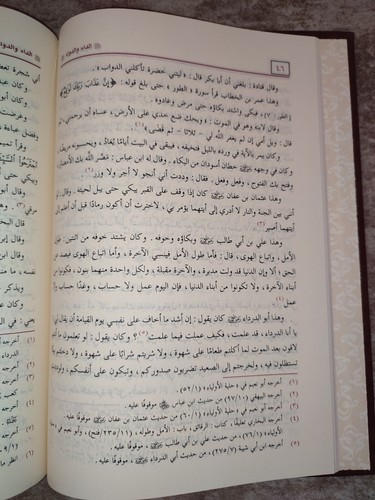 ٤٦ الداء والدواء
وقال قتادة : بلغني أن أبا بكر قال : « ليتني خضرة تأكلني الدواب » .
وهذا عمر بن الخطاب قرأ سورة « الطور » حتى بلغ قوله : ﴿إِنَّ عَذَابَ رَبِّكَ لَوَاقِعٌ﴾
[الطور : ٧] ، فبكى واشتد بكاؤه حتى مرض وعادوه
وقال لابنه وهو في الموت : « ويحك ضع خدي على الأرض ، عساه أن يرحمني ،
قال : ويل أمي إن لم يغفر الله لي - ثلاثا - ثم قضى » (١)
وكان يمر بالآية في ورده بالليل فتخيفه ، فيبقى في البيت أيامًا يُعاد ، ويحسبونه مريضًا
وكان في وجهه خطان أسودان من البكاء . وقال له ابن عباس : مصّر الله بك الأمصار
وفتح بك الفتوح ، وفعل وفعل . فقال : وددت أني أنجو لا أجر ولا وزر
وهذا عثمان بن عفان كان إذا وقف على القبر يبكي حتى يبل لحيته . وقال :
أنني بين الجنة والنار لا أدري إلى أيتهما يؤمر بي ، لاخترت أن أكون رمادًا قبل أن أعلم إلى
أيتهما أصير (٣)
وهذا علي بن أبي طالب وبكاؤه وخوفه . وكان يشتد خوفه من اثنتين : طول
الأمل ، واتباع الهوى ، قال : فأما طول الأمل فينسي الآخرة ، وأما اتباع الهوى فيصد عن
الحق ، ألا وإن الدنيا قد ولت مدبرة ، والآخرة مقبلة ، ولكل واحدة منهما بنون ، فكونوا من
أبناء الآخرة ، ولا تكونوا من أبناء الدنيا ، فإن اليوم عمل ولا حساب ، وغدًا حساب ولا
عمل
وهذا أبو الدرداء كان يقول : إن أشد ما أخاف على نفسي يوم القيامة أن يقال لي
يا أبا الدرداء ، قد علمت ، فكيف عملت فيما علمت (٥) ؟ وكان يقول : لو تعلمون ما أنتم
لاقون بعد الموت لما أكلتم طعامًا على شهوة ، ولا شربتم شرابًا على شهوة ، ولا دخلتم بيتًا
تستظلون فيه ، ولخرجتم إلى الصعيد تضربون صدوركم ، وتبكون على أنفسكم ، ولوددت
(١) أخرجه أبو نعيم في « حلية الأولياء » (٥٢/١) .
(٢) أخرجه البيهقي (٩٧/١٠) من حديث ابن عباس موقوفًا عليه .
(٣) أخرجه أبو نعيم في « حلية الأولياء » (٦٠/١) من حديث عثمان بن عفان موقوفًا عليه .
(٤) أخرجه البخاري تعليقًا ، كتاب : الرقاق ، باب : الأمل وطوله ، (٢٣٥/١١/فتح) ، وأبو نعيم في « حلية
الأولياء » (٧٦/١) من حديث علي بن أبي طالب موقوفًا عليه .
(٥) أخرجه ابن أبي شيبة (٢٧٥/٧) من حديث أبي الدرداء موقوفًا عليه .